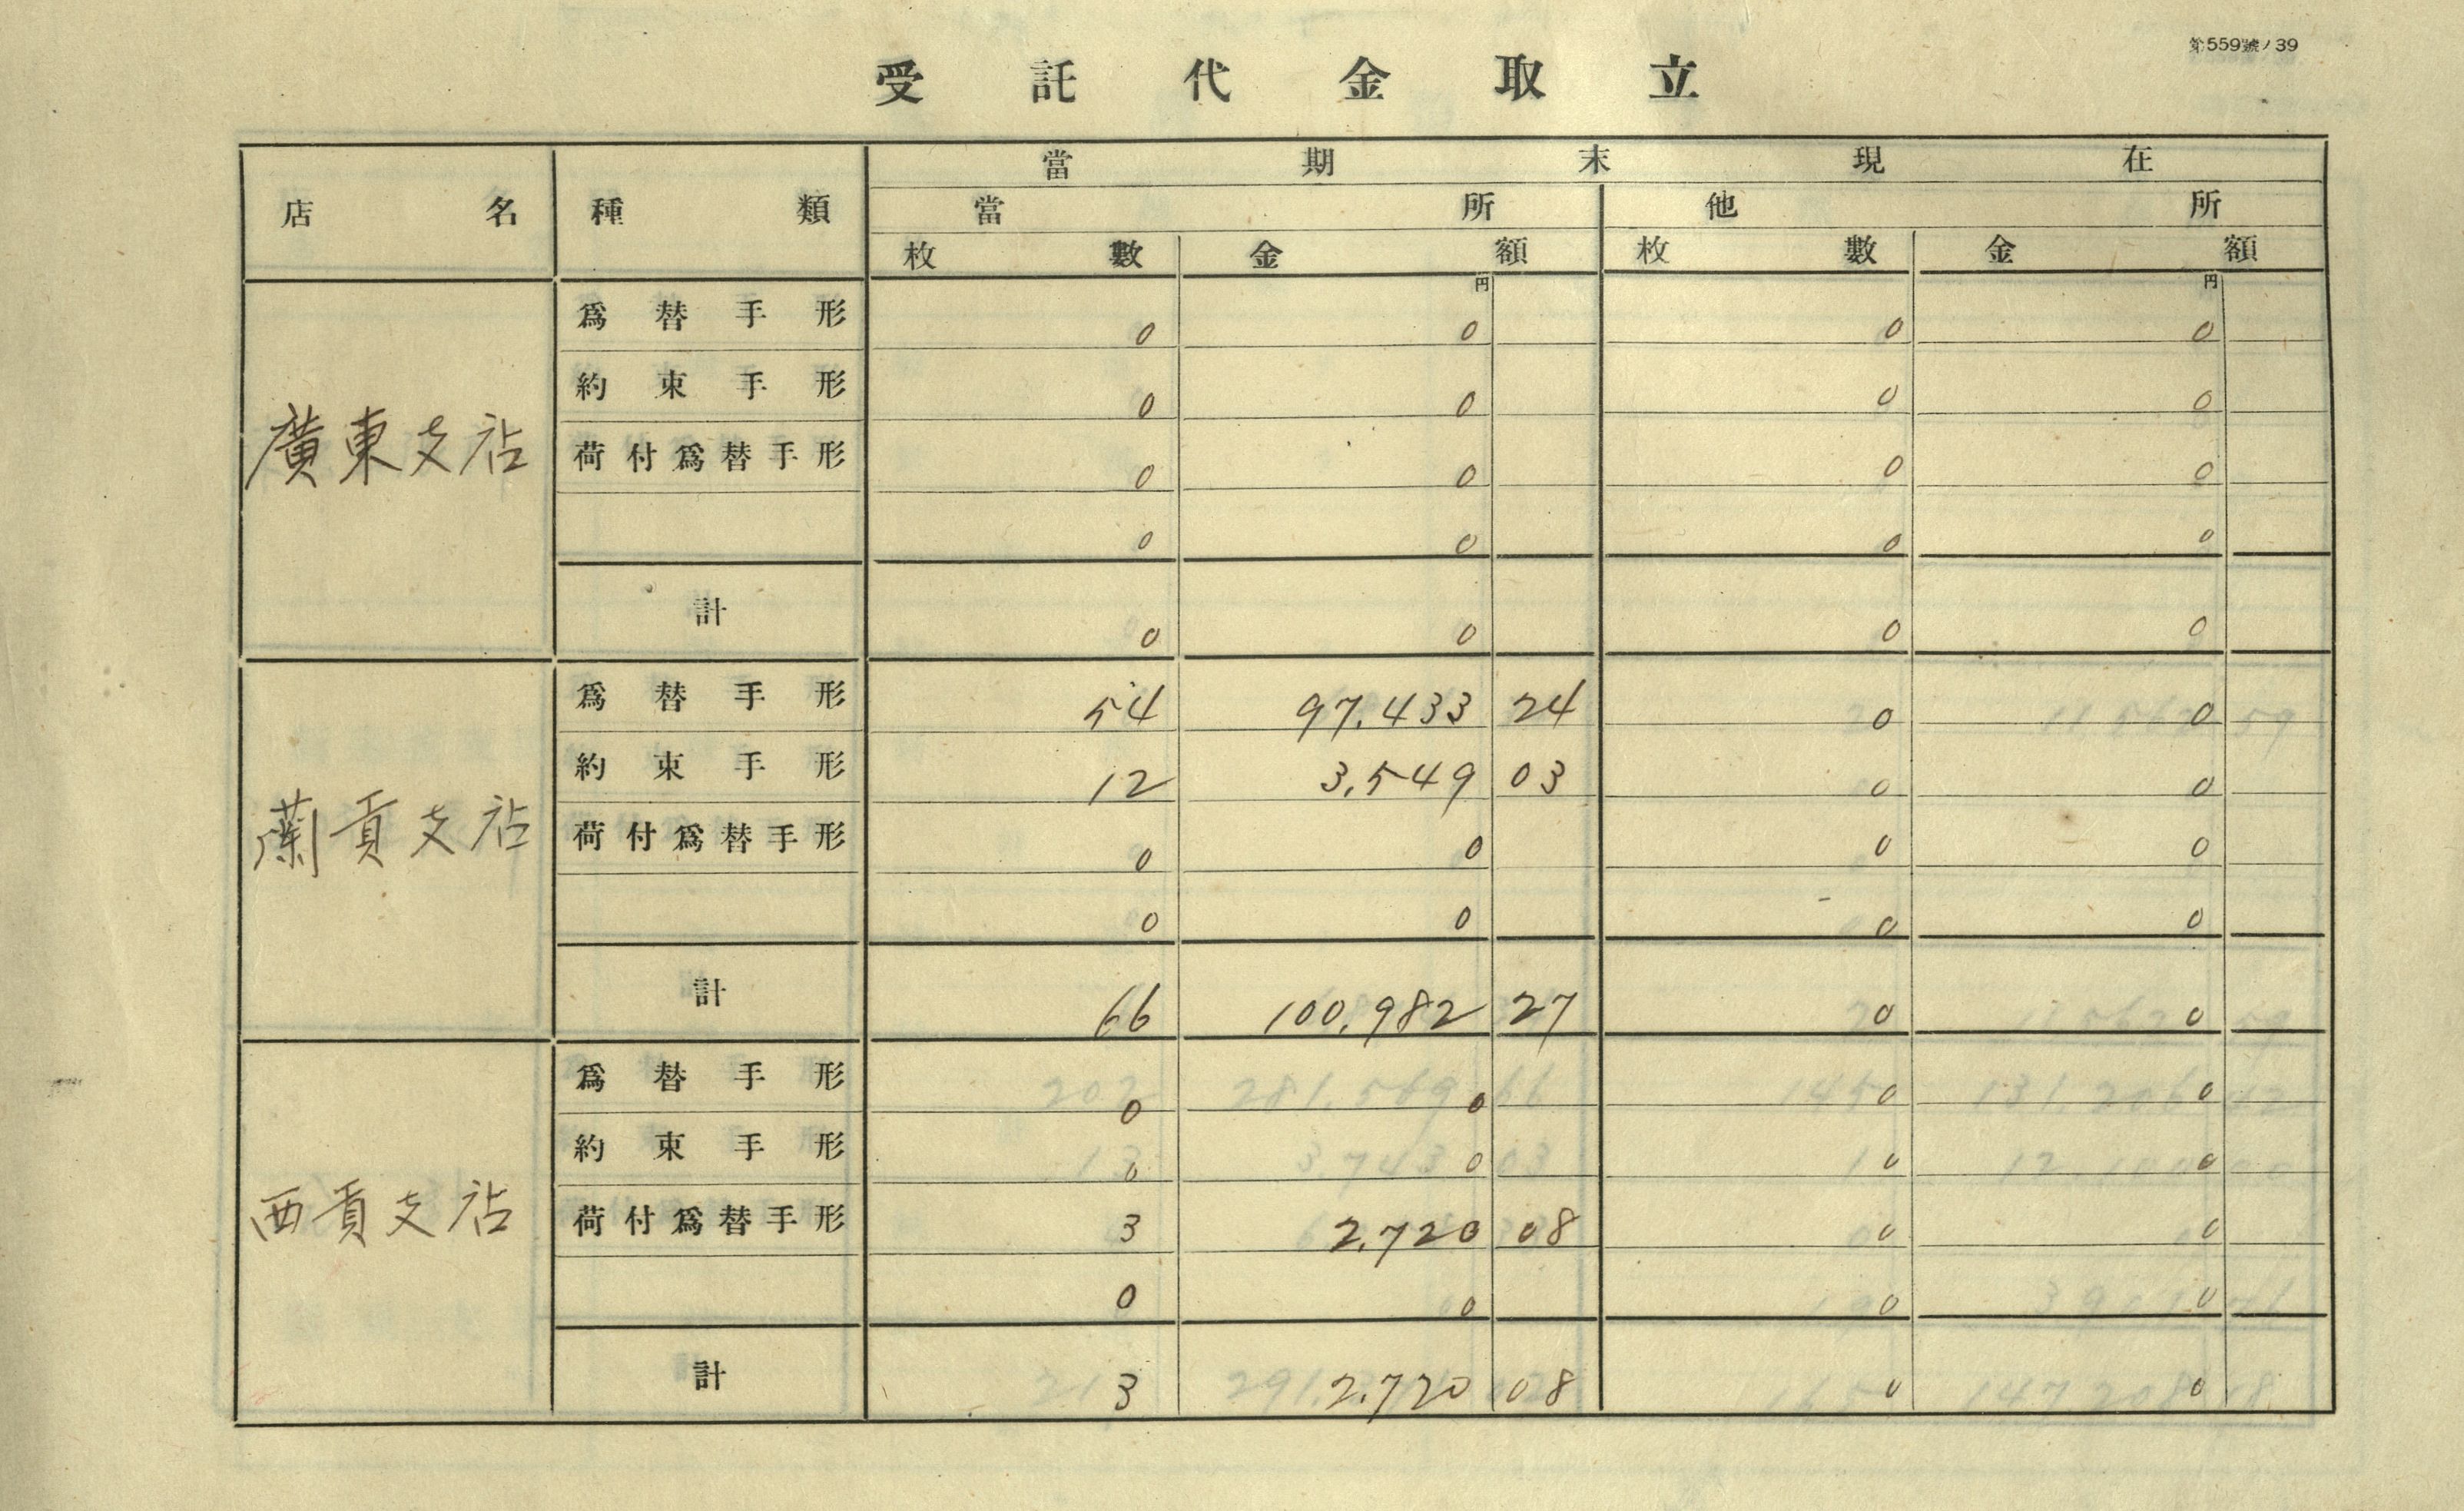 第559號ノ39
受託代金取立
店名 種類 當期末現在
當所 他所
枚數 金額 枚數 金額
円 円
廣東支店
爲替手形 0 0 0 0
約束手形 0 0 0 0
荷付爲替手形 0 0 0 0
0 0 0 0
計 0 0 0 0
蘭貢支店
爲替手形 54 97,433 24 0 0
約束手形 12 3,549 03 0 0
荷付爲替手形 0 0 0 0
0 0 0 0
計 66 100,982 27 0 0
西貢支店
爲替手形 0 0 0 0
約束手形 0 0 0 0
荷付爲替手形 3 2,720 08 0 0
0 0 0 0
計 3 2,720 08 0 0